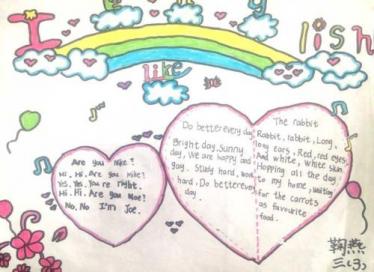 I
lish
like
Are you Mike?
Hi, Hi, Are you Mike?
Yes, Yes, You're right.
Hi, Hi, Are you Moe?
No, No I'm Joe.
Do better every day
Bright day, Sunny
day, We are happy and
gay. Study hard, work
hard. Do better every
day.
The rabbit
Rabbit, rabbit, Long,
long ears, Red, red eyes
And white, white skin
Hopping all the day
to my home, waiting
for the carrots
as favourite
food.
鞠燕
三(3)